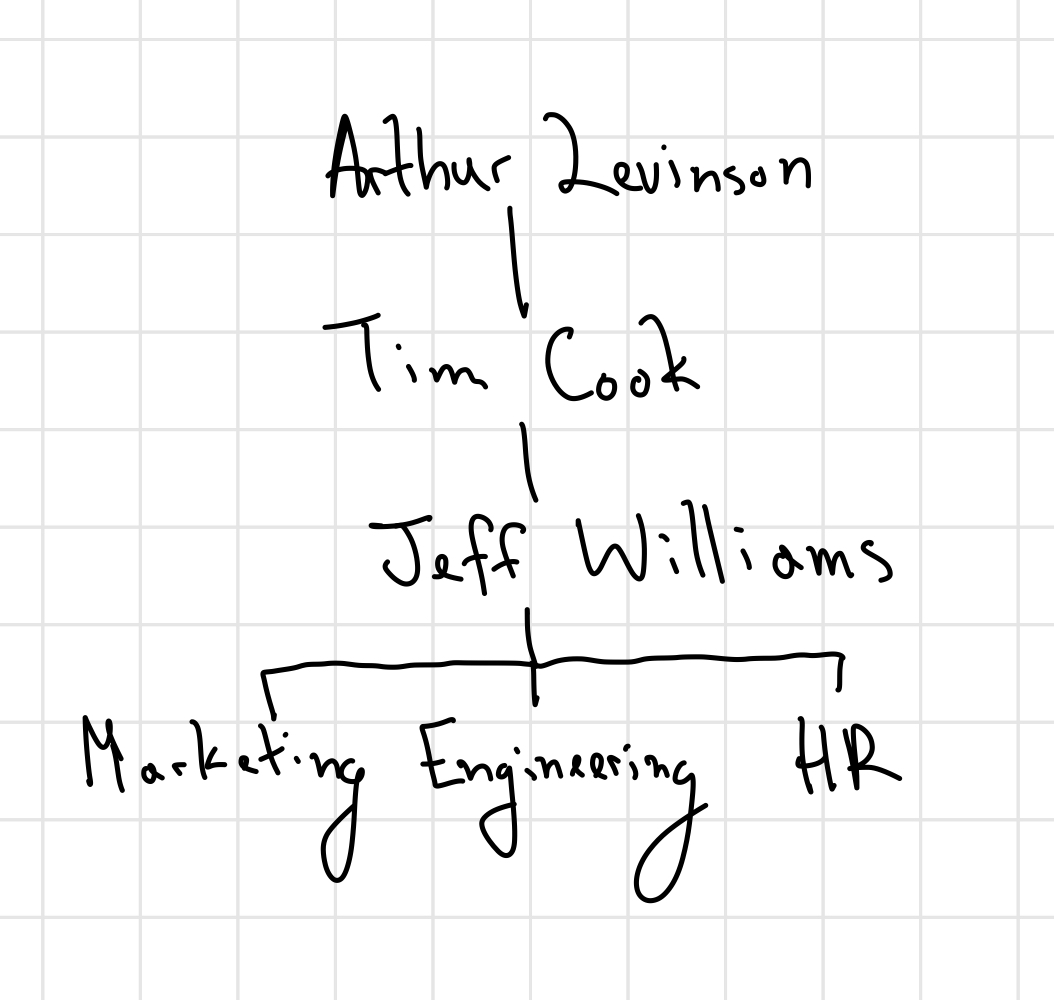 Arthur Levinson
Tim Cook
Jeff Williams
Marketing Engineering HR